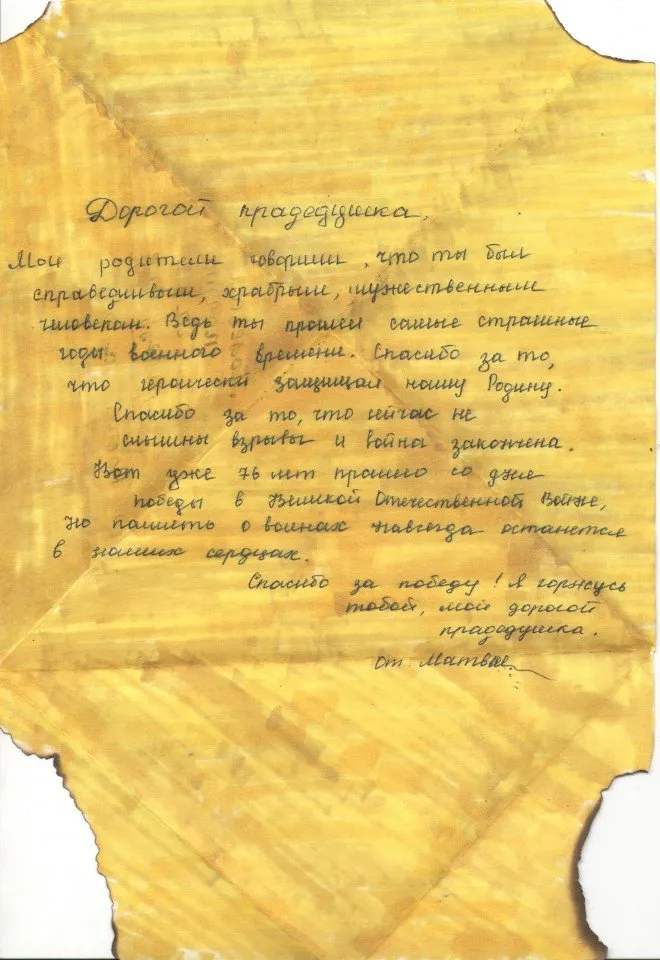 Дорогой прадедушка,
Мои родители говорили, что ты был
справедливым, храбрым, мужественным
человеком. Ведь ты прошел самые страшные
годы военного времени. Спасибо за то,
что героически защищал нашу Родину.
Спасибо за то, что сейчас не
слышны взрывы и война закончена.
Вот уже 76 лет прошло со дня
победы в Великой Отечественной Войне,
Но память о воинах навсегда останется
в наших сердцах.
Спасибо за победу! Я горжусь
тобой, мой дорогой
прадедушка.
от Матвея.